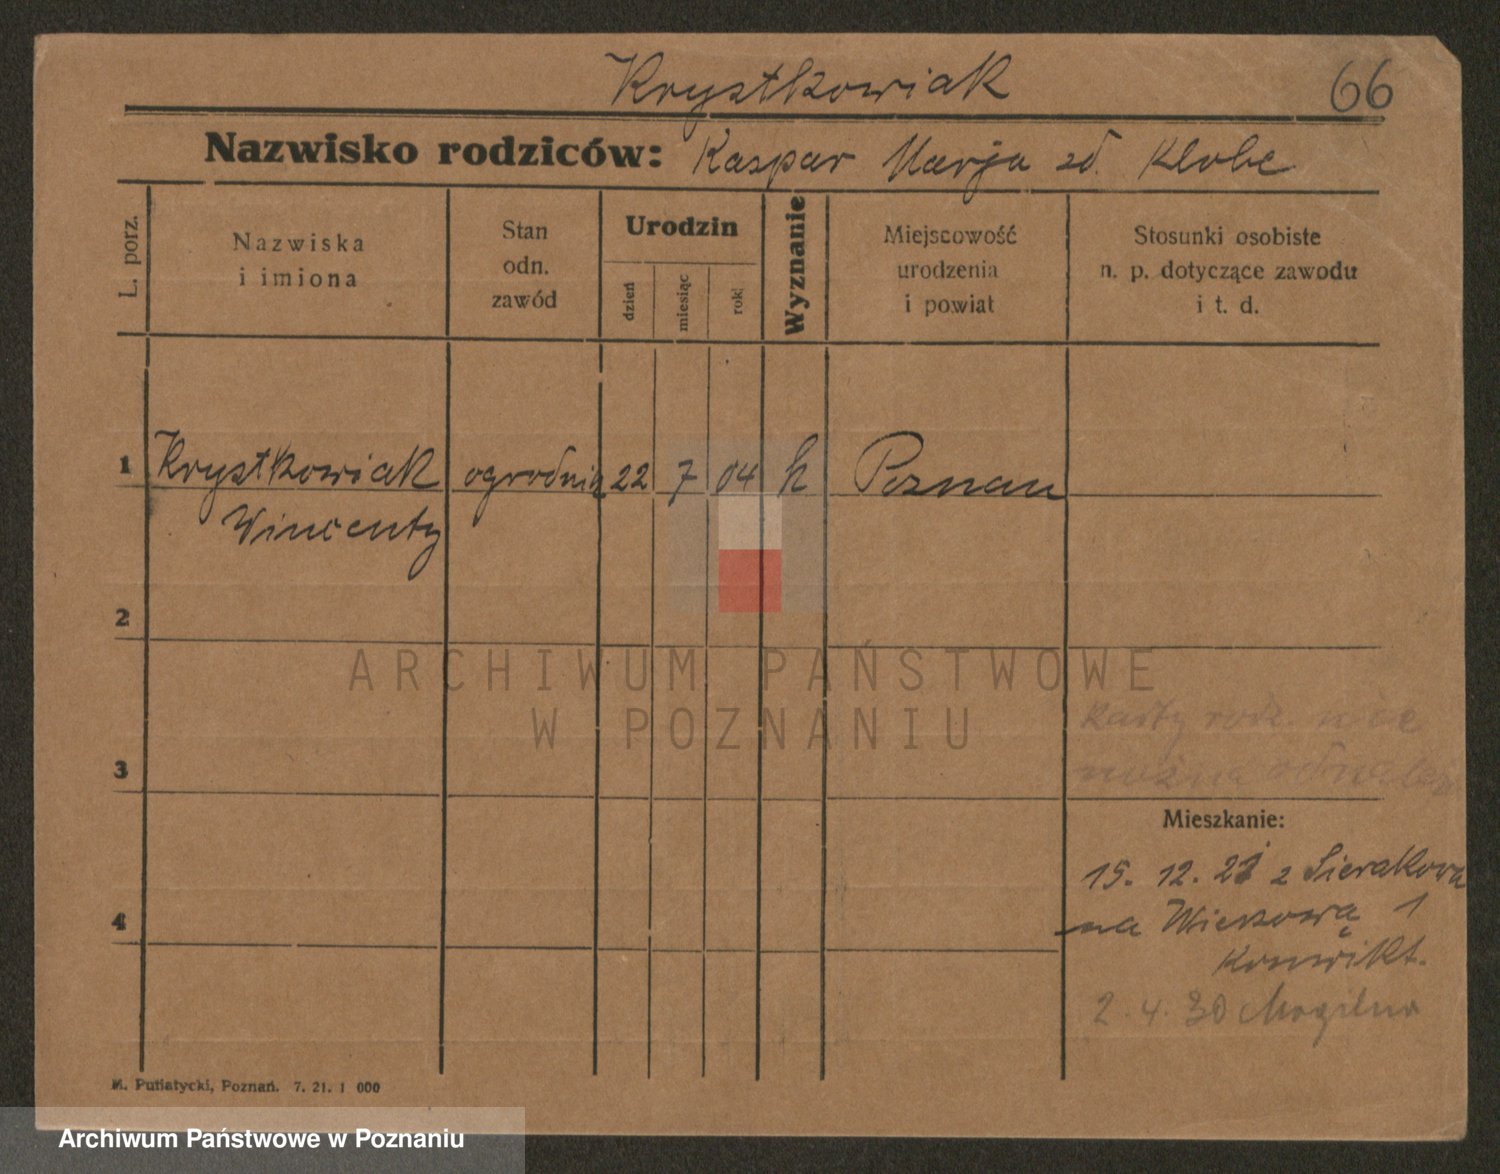 Krystkowiak 66
Nazwisko rodziców: Kaspar Marja zd. Klobe
L. porz.
Nazwiska
i imiona
Stan
odn.
zawód
Urodzin
dzień
miesiąc
rok
Wyznanie
Miejscowość
urodzenia
i powiat
Stosunki osobiste
n. p. dotyczące zawodu
i t. d.
1 Krystkowiak ogrodnik 22 7 04 k Poznan
Wincenty
2
ARCHIWUM PAŃSTWOWE
W POZNANIU
Karty rodz. nie
można
3
Mieszkanie:
15. 12. 21 z Sierakowa
4
na 1
Konwikt.
2. 4. 30 Mogilno
M. Putiatycki, Poznań. 7. 21. 1 000
Archiwum Państwowe w Poznaniu